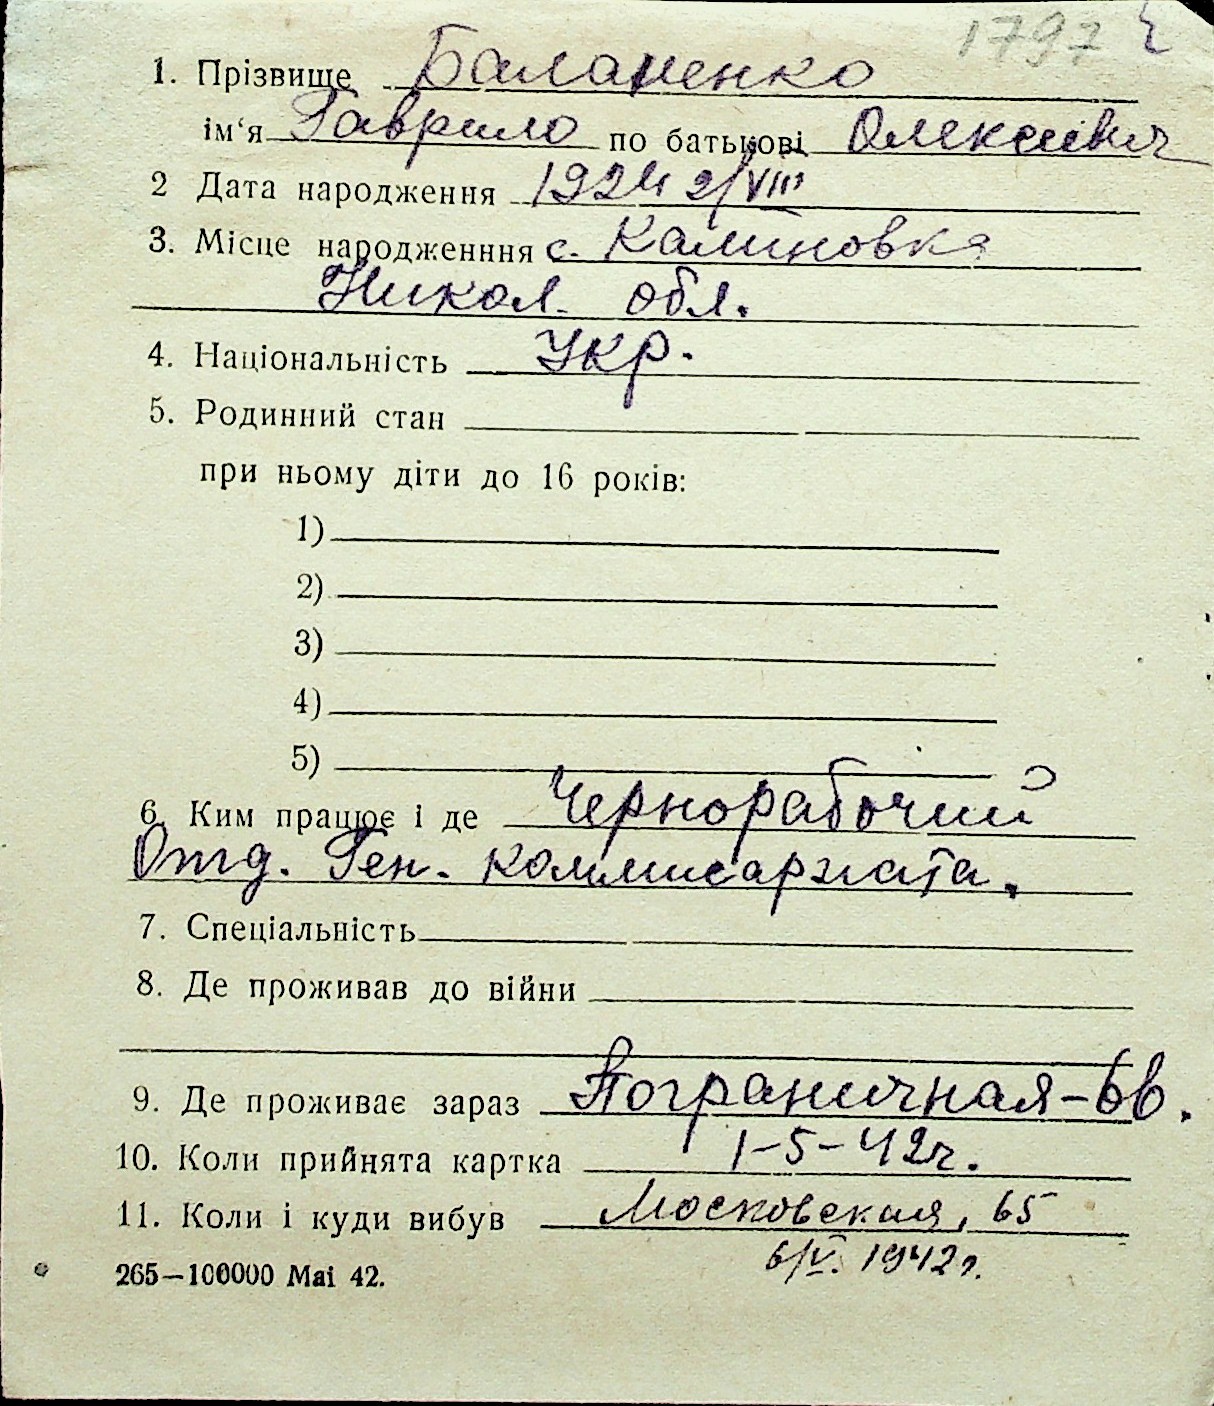 1797
1. Прізвище Баламенко
ім‘я Гаврило по батькові Олексеевич
2 Дата народження 1924 2/VIII
3. Місце народженння с. Калиновка
Никол. обл.
4. Національність Укр.
5. Родинний стан
при ньому діти до 16 років:
1)
2)
3)
4)
5)
6. Ким працює і де Чернорабочий
Отд. Ген. коммисариата.
7. Спеціальність
8. Де проживав до війни
9. Де проживає зараз Пограничная-6в.
10. Коли прийнята картка 1-5-42г.
11. Коли і куди вибув Московская, 65
6/V. 1942г.
265—100000 Mai 42.